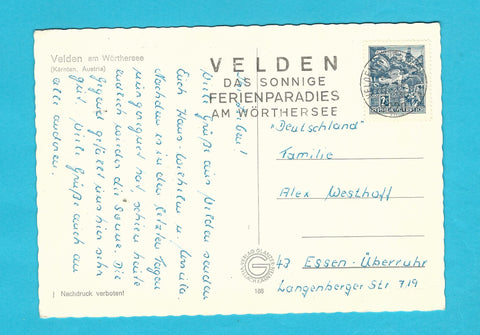 Velden am Wörthersee
(Kärnten, Austria)
Ihr Lieben!
Viele Grüße aus Velden senden
Euch Hans-Wilhelm u. Monika.
Nachdem es in den letzten Tagen
nur geregnet hat, schien heute
endlich wieder die Sonne. Die
Gegend gefällt uns hier sehr
gut. Viele Grüße auch an
alle anderen.
| Nachdruck verboten!
VELDEN
DAS SONNIGE
FERIENPARADIES
AM WÖRTHERSEE
"Deutschland"
Familie
Alex Westhoff
43 Essen-Überruhr
Langenberger Str 719
188